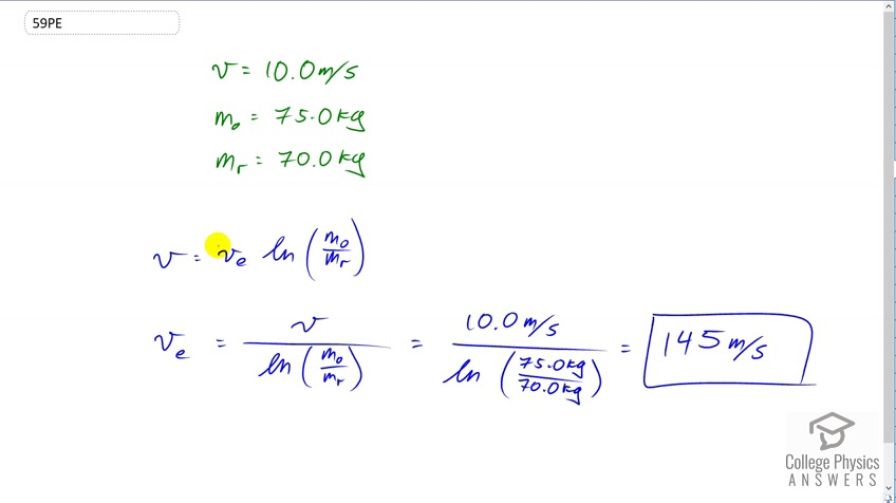 59PE
v = 10.0 m/s
m₀ = 75.0 kg
mᵣ = 70.0 kg
v = vₑ ln(m₀/mᵣ)
vₑ = v / ln(m₀/mᵣ) = 10.0 m/s / ln(75.0 kg/70.0 kg) = 145 m/s
College Physics
ANSWERS